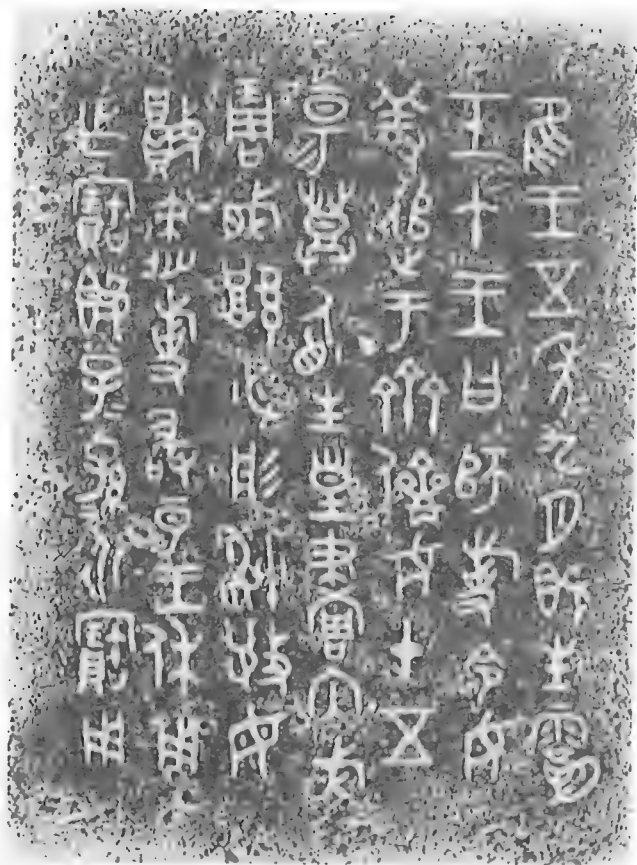 隹王五年九月既生霸
壬午王曰師旋令女
羞追于齊儕女十五
昜登盾生皇畫內戈
琱㦸厚必彤沙敬毋
敗速旋敢昜王休用
乍寶簋子孫永寶用